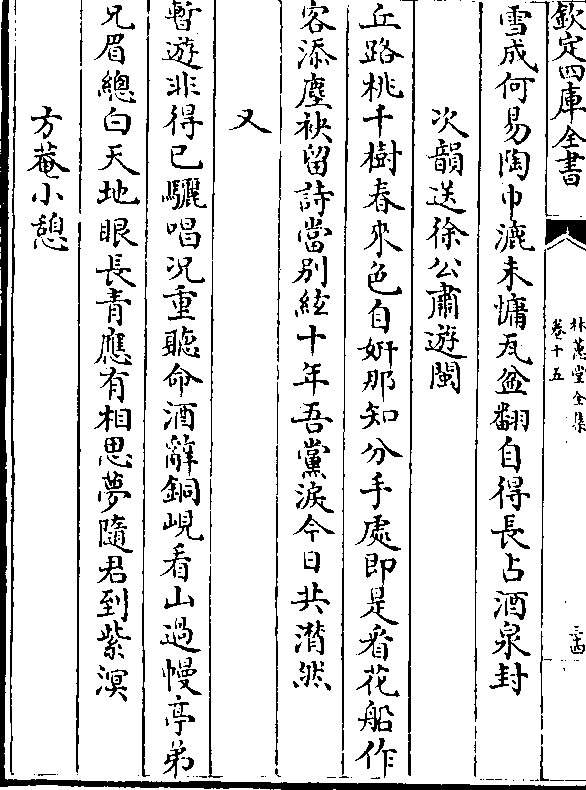 欽定四庫全書
林蕙堂全集
卷十五
三十四
雪成何易陶巾漉未慵瓦盆翻自得長占酒泉封
次韻送徐公肅遊閩
丘路桃千樹春來色自妍那知分手處即是看花船作
客添塵袂留詩當別絃十年吾黨淚今日共潸然
又
暫遊非得已驪唱况重聽命酒辭銅峴看山過幔亭弟
兄眉總白天地眼長青應有相思夢隨君到紫溟
方菴小憩